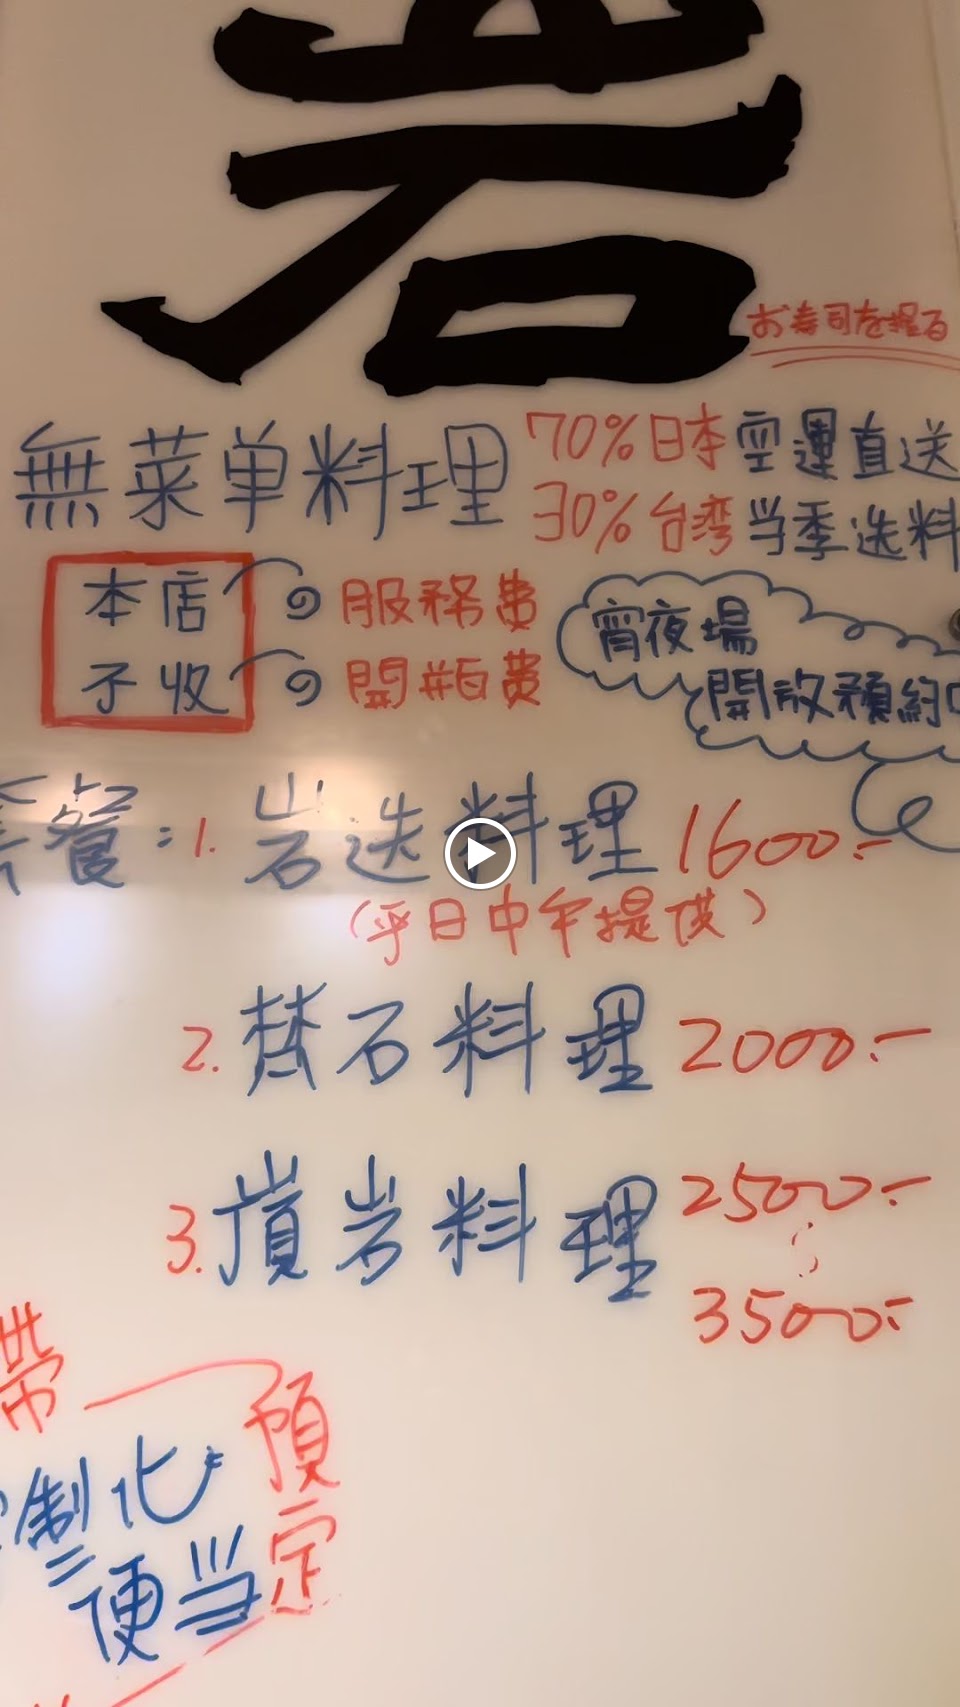 岩
お寿司を握る
無菜单料理
70%日本空運直送
30%台湾当季迭料
本店
不收
服務費
開瓶費
宵夜場
開放預約中
套餐:1. 岩迭料理 1600.-
(平日中午提供)
2. 替石料理 2000.-
3. 頂岩料理 2500.-
3500.-
帶
預定
制化
便当